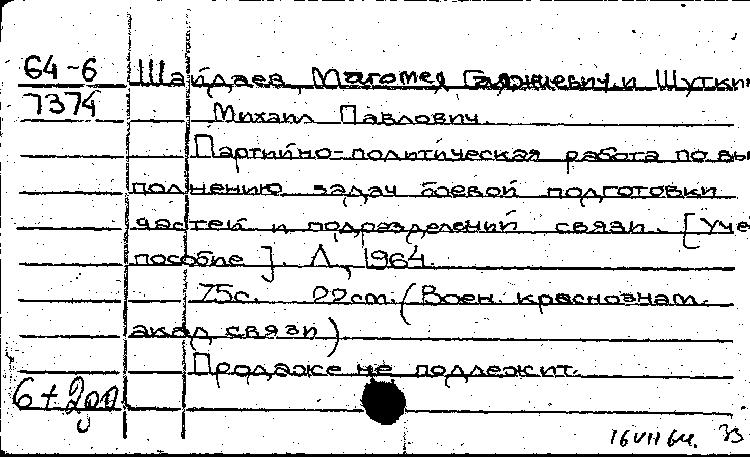 64-6 Шайдаев, Магомед Гаджиевич и Шуткин
7374 Михаил Павлович.
Партийно-политическая работа по вы
полнению задач боевой подготовки
частей и подразделений связи. [Уче
пособие]. Л, 1964.
75с. 22см. (Воен. краснознам.
акад связи)
Продаже не подлежит.
6+2
16 VII 64. 33